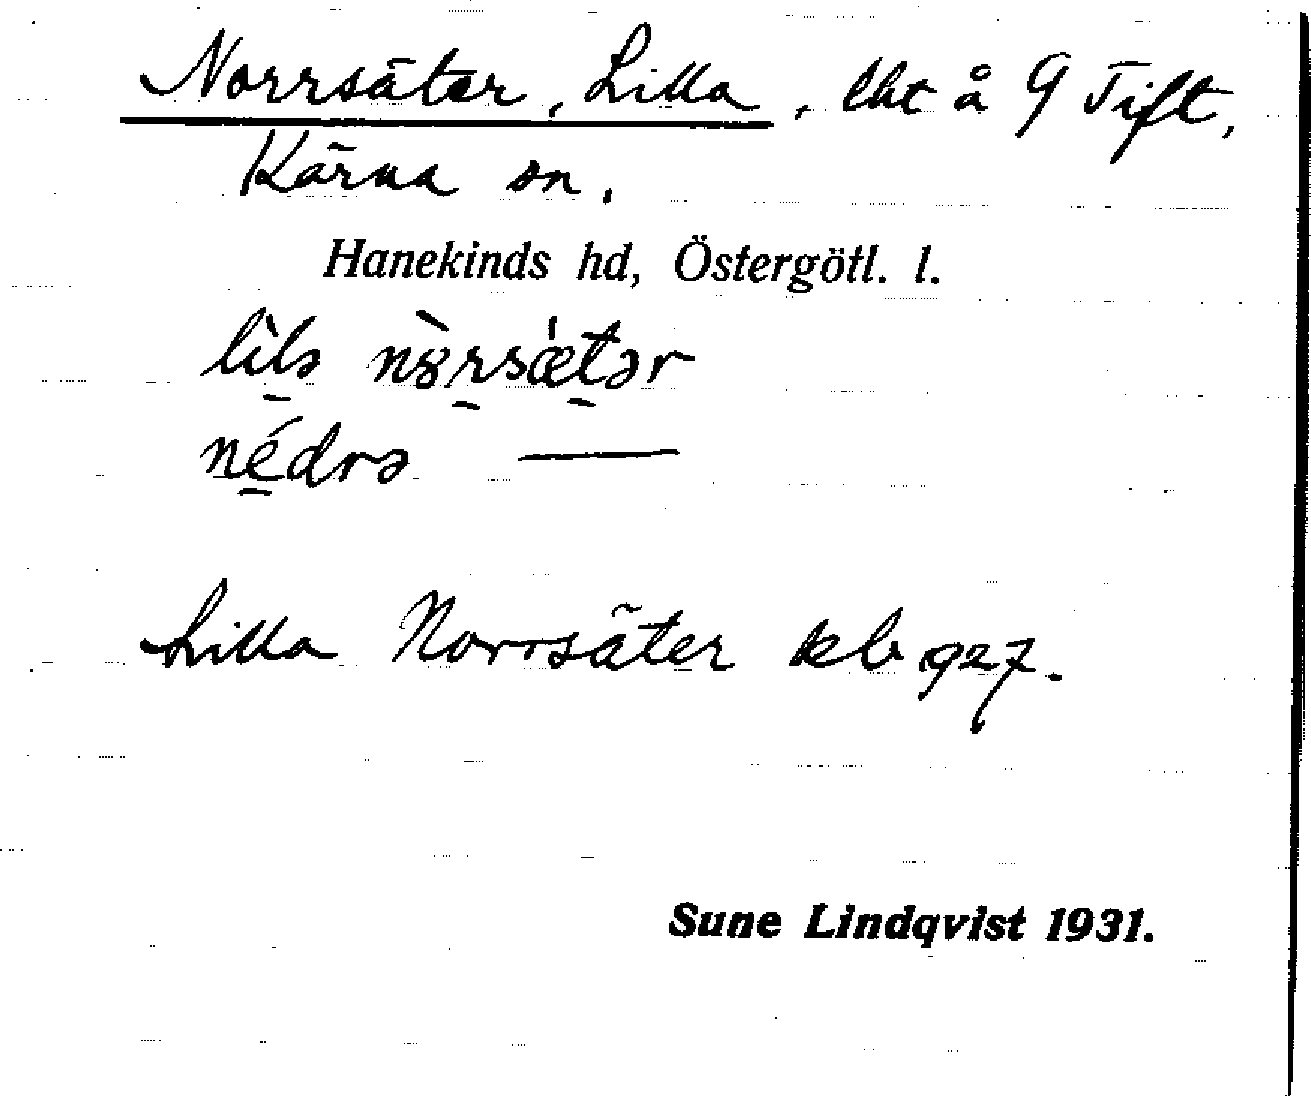 Norrsäter, Lilla, lht å G Tift,
Kärna sn.
Hanekinds hd, Östergötl. l.
lìlə nȣ̀rsǽtər
nédrə —
Lilla Norrsäter kb 927.
Sune Lindqvist 1931.